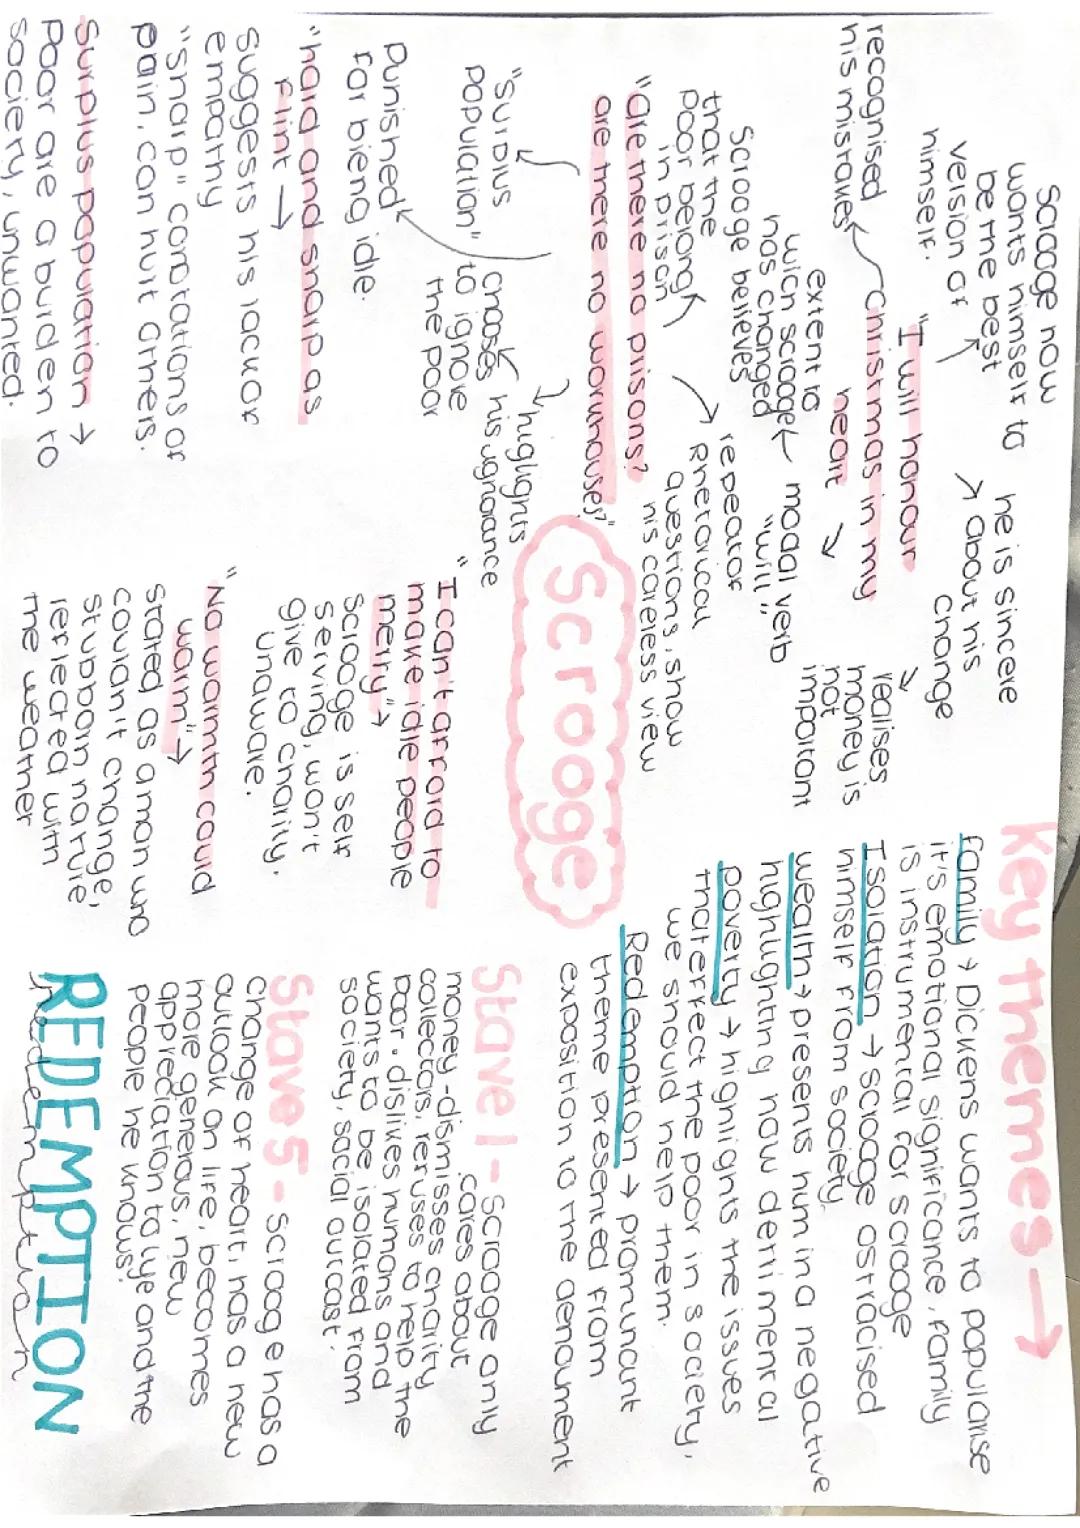 Scrooge now
wants himself to
be the best
version of
himself.
he is sincere
about his
change
"I will honour
Christmas in my
heart →
recognised
his mistakes
realises
money is
not
important
extent to
wich scrooge ← modal verb
has changed "will"
Scrooge believes
that the
poor belong
in prison
repeator
Rhetorical
questions, show
his careless view
"are there no prisons?
are there no workhouses?"
"Surplus
population"
highlights
his ignorance
chooses
to ignore
the poor
Punished
for bieng idle.
"hard and sharp as
flint →
suggests his lack of
empathy
"sharp" conotations of
pain, can hurt others.
Surplus population →
Poor are a burden to
society, unwanted.
Scrooge
"I can't afford to
make idle people
merry" →
Scrooge is self
serving, won't
give to charity.
unaware.
"No warmth could
warm" →
stated as a man who
couldn't change,
stubborn nartue,
reflected with
the weather
Key Themes →
family → Dickens wants to popularise
it's emotional significance, family
is instrumental for scrooge
Isolation → scrooge ostracised
himself from society
wealth → presents hum in a negative
highlighting how dertimental
poverty → highlights the issues
that effect the poor in society,
we should help them.
Redemption → promunant
theme presented from
exposition to the denoument
Stave 1 - Scrooge only
cares about
money - dismisses charity
collectors, refuses to help the
poor. dislikes humans and
wants to be isolated from
society, social outcast.
Stave 5 - Scrooge has a
change of heart, has a new
outlook on life, becomes
more generous, new
appreciation to lye and the
people he knows.
REDEMPTION
redemption